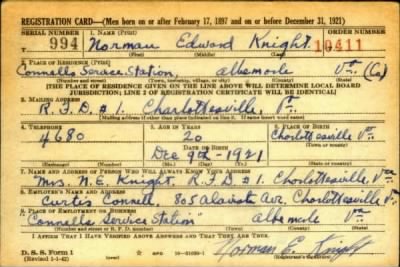 REGISTRATION CARD—(Men born on or after February 17, 1897 and on or before December 31, 1921)
SERIAL NUMBER 1. NAME (Print) ORDER NUMBER
994 Norman Edward Knight 10411
(First) (Middle) (Last)
2. PLACE OF RESIDENCE (Print)
Connells Service Station, Albemarle Va (Co)
(Number and street) (Town, township, village, or city) (County) (State)
[THE PLACE OF RESIDENCE GIVEN ON THE LINE ABOVE WILL DETERMINE LOCAL BOARD
JURISDICTION; LINE 2 OF REGISTRATION CERTIFICATE WILL BE IDENTICAL]
3. MAILING ADDRESS
R.F.D. #1. Charlottesville, Va.
[Mailing address if other than place indicated on line 2. If same insert word same]
4. TELEPHONE 5. AGE IN YEARS 6. PLACE OF BIRTH
4680 20 Charlottesville
DATE OF BIRTH (Town or county)
Dec 9th - 1921 Va
(Mo.) (Day) (Yr.) (State or country)
7. NAME AND ADDRESS OF PERSON WHO WILL ALWAYS KNOW YOUR ADDRESS
Mrs. N.E. Knight, R.F.D #1. Charlottesville Va
8. EMPLOYER'S NAME AND ADDRESS
Curtis Connell, 805 Ave, Charlottesville Va
9. PLACE OF EMPLOYMENT OR BUSINESS
"Connells Service Station" Albemarle Va
(Number and street or R. F. D. number) (Town) (County) (State)
I AFFIRM THAT I HAVE VERIFIED ABOVE ANSWERS AND THAT THEY ARE TRUE.
D. S. S. Form 1 Norman E. Knight
(Revised 1-1-42) (Registrant's signature)